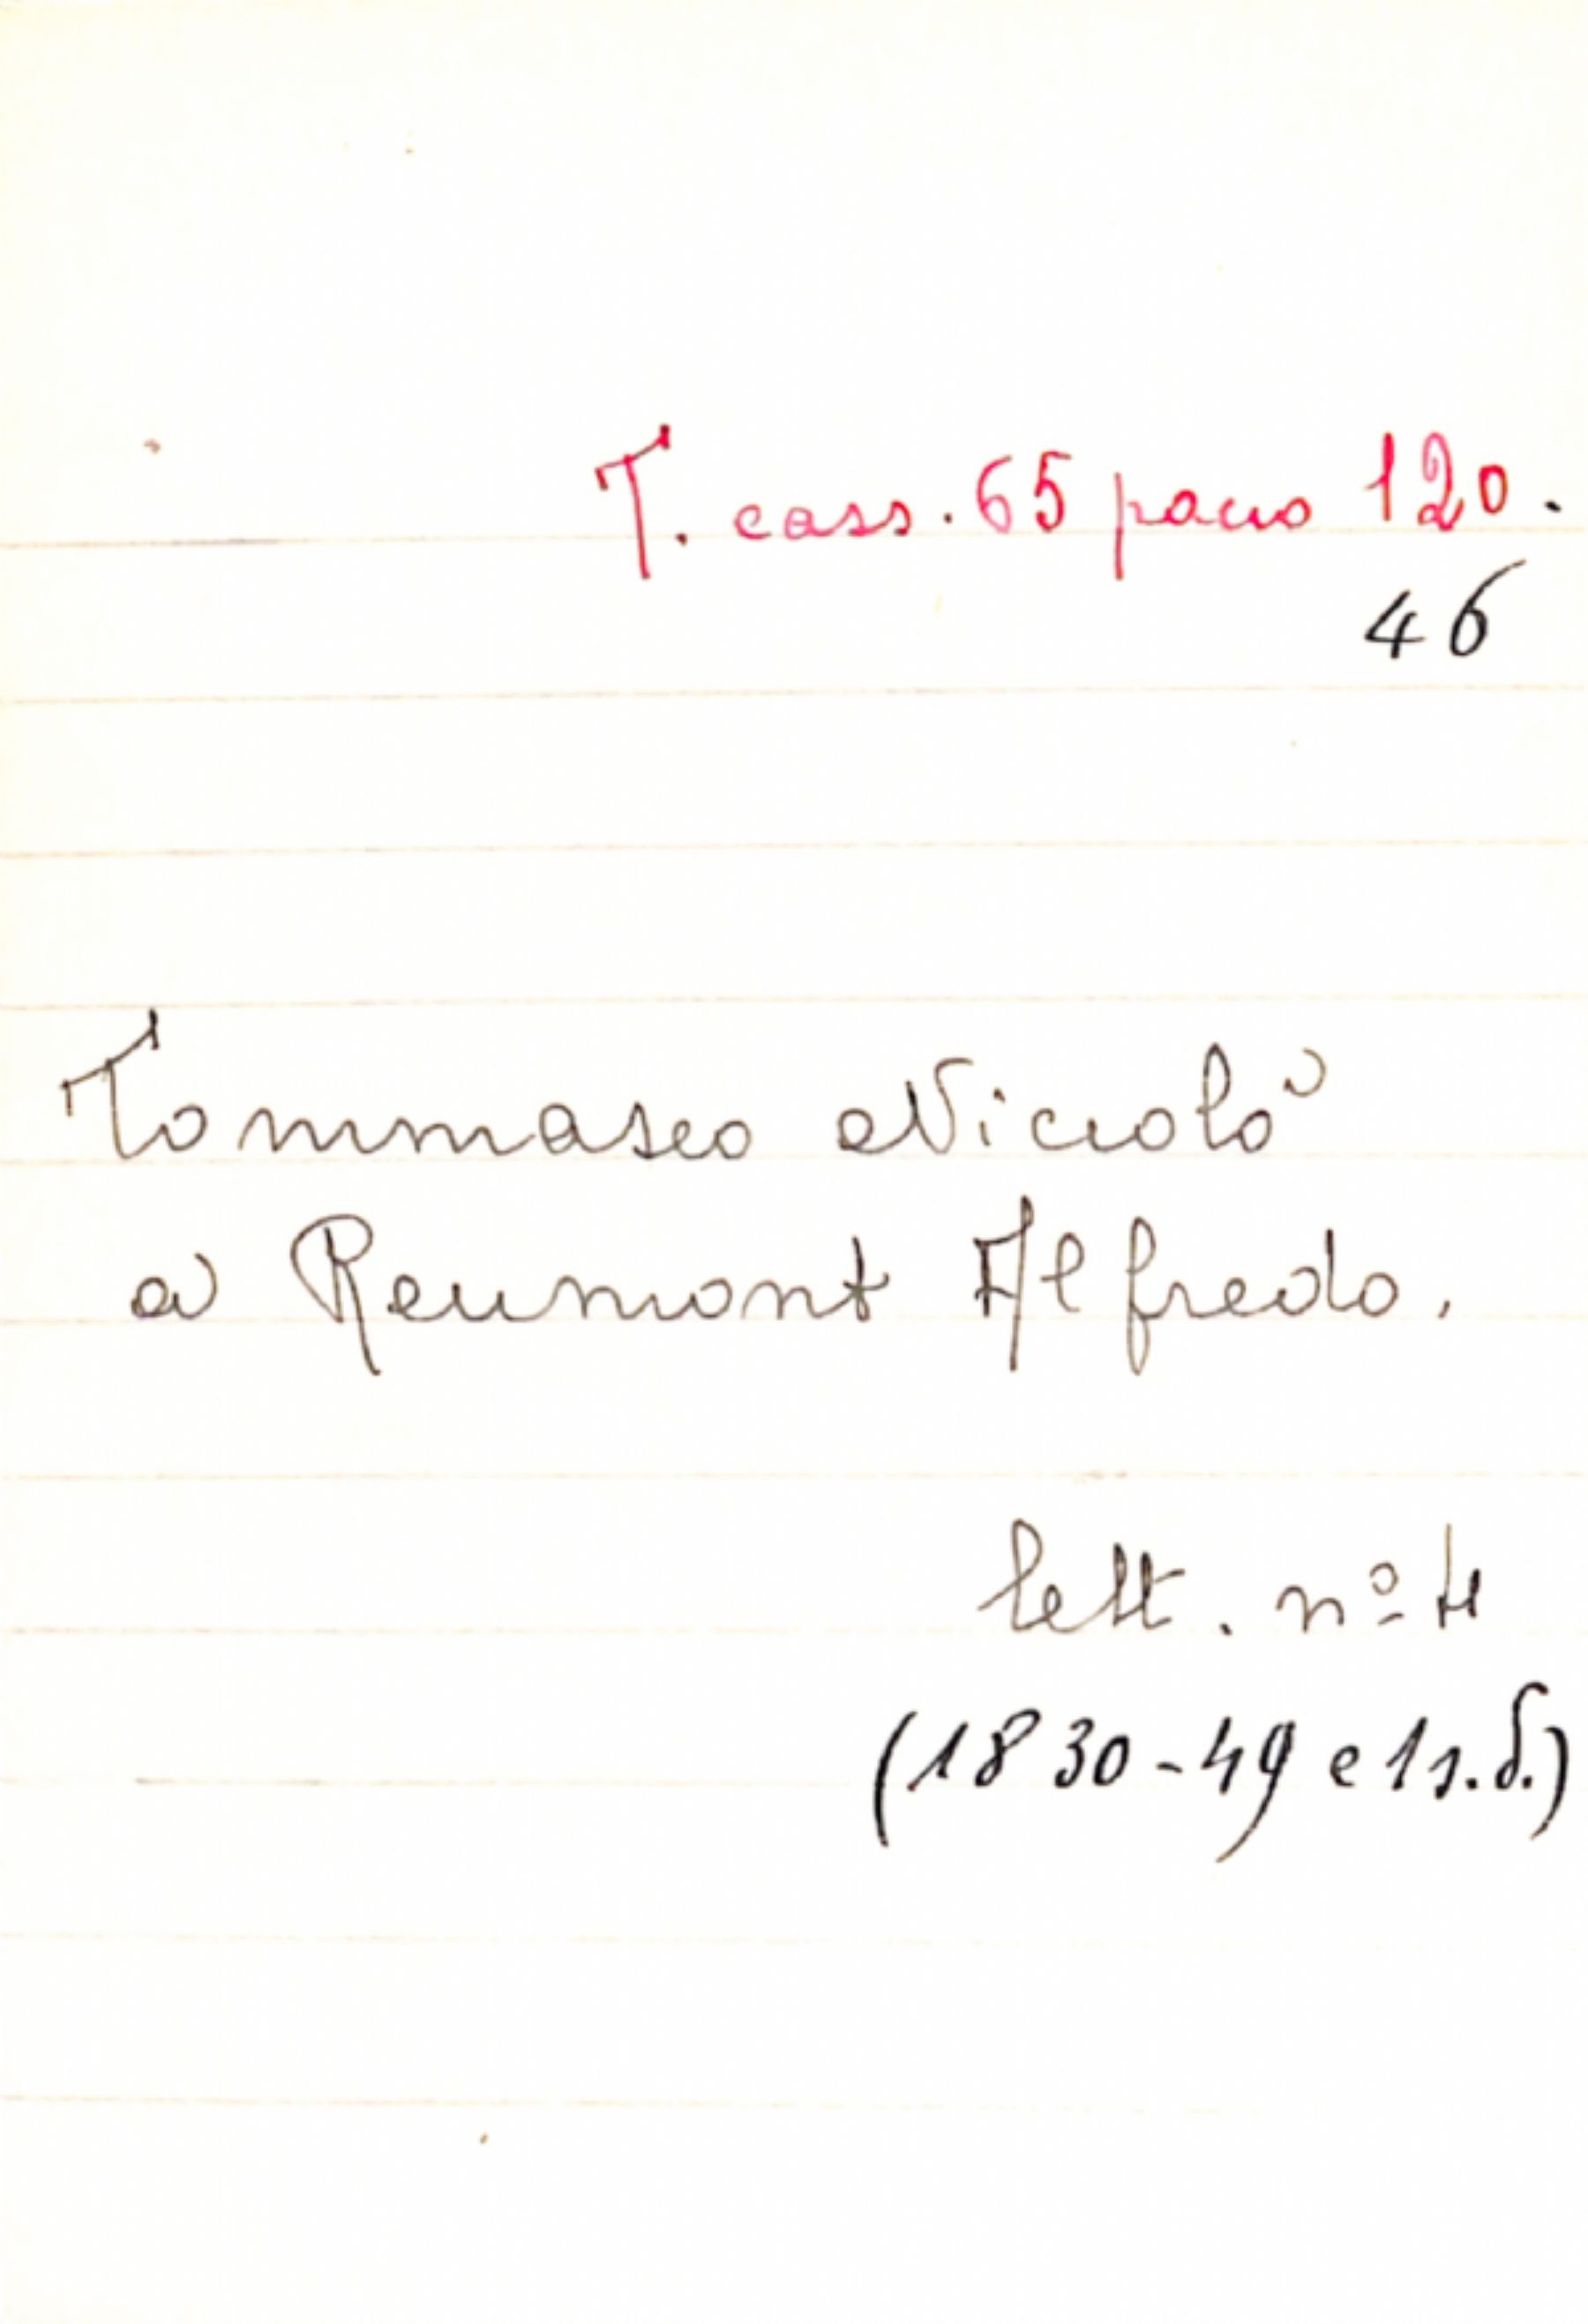 T. cass. 65 pacco 120.
46
Tommaseo Niccolò
a Reumont Alfredo.
lett. nº 4
(1830-49 e 1 s.d.)